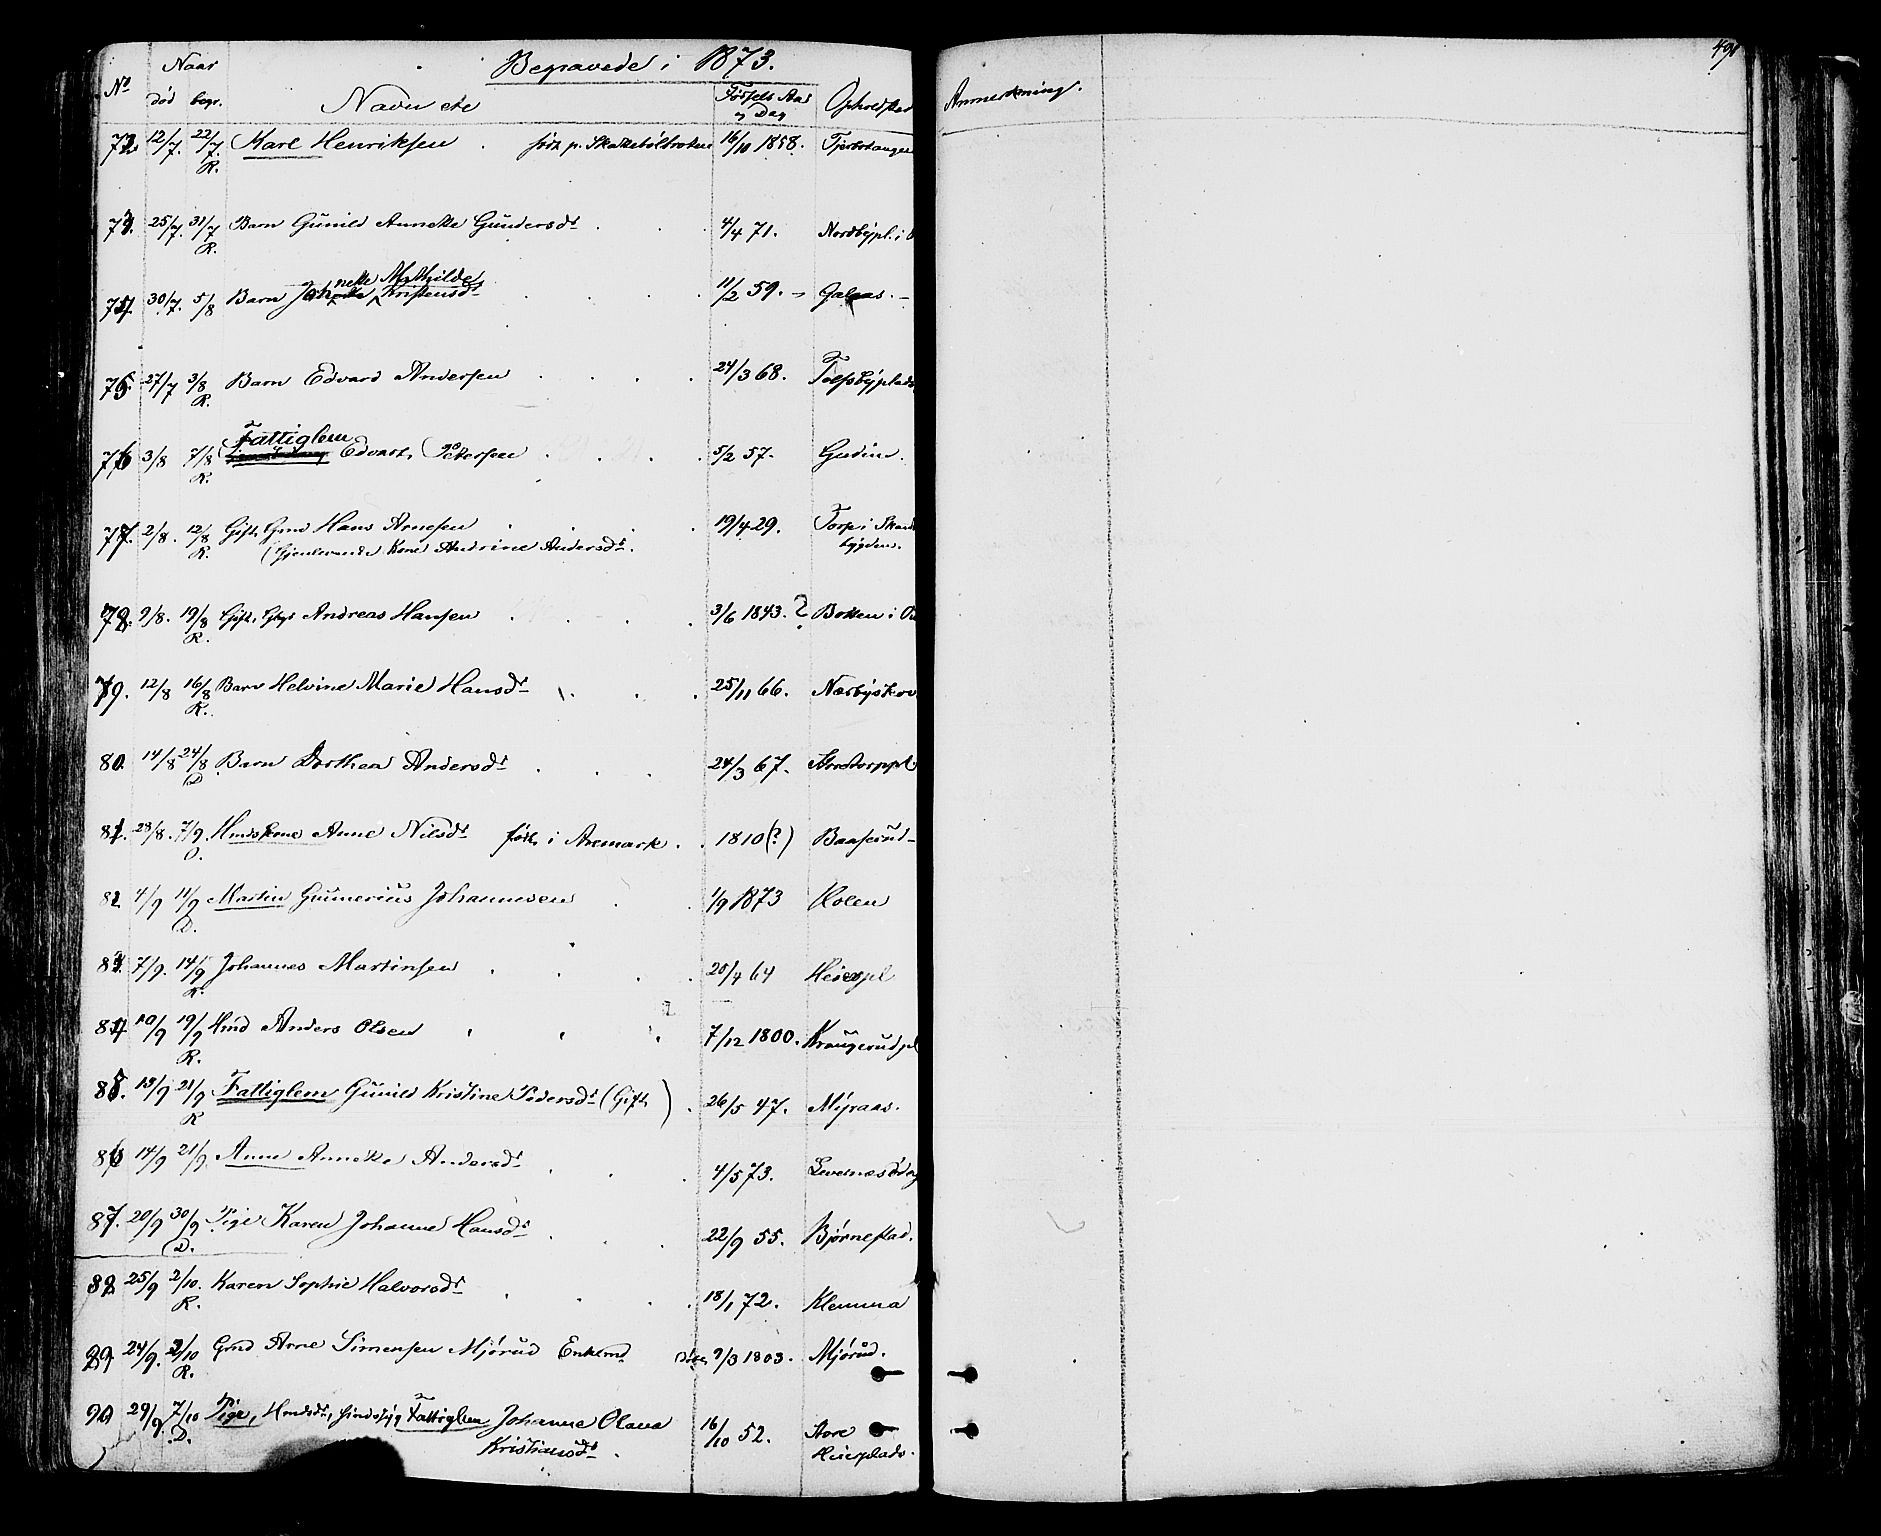 Begravede i 1873.
No Naar død begr. Navn etc Fødsels Aar og Dag Opholdsted Anmerkning.
72. 12/7. 22/7. R. Karl Henriksen . født p. 16/10 1858.
73. 25/7. 31/7 R. Barn Gunild Annette Gundersdt 4/4 71. Nordbypl. i
74. 30/7. 5/8 Barn nette Mathilde Kristensdt 11/2 59.
75. 27/7 3/8 R. Barn Edvard Andersen 24/3 68.
76 3/8 7/8 R. Fattiglem Edvart Petersen 5/2 57. Gudim.
77. 2/8. 12/8 R. Gift Grd Hans Arnesen 19/4 29. Torp i
(Gjenlevende Kone Andrine Andersdt. bygden.
78. 9/8. 19/8 R. Gift Andreas Hansen 3/6 1843. ? Botten i
79. 12/8 16/8 R. Barn Helvine Marie Hansdt 25/11 66. Narbyskov
80. 14/8 24/8 D. Barn Dorthea Andersdt 24/3 67.
81. 28/8. 7/9. D. Hmdskone Anne Nilsdt født i Aremark . 1810(?) Baaserud
82 4/9 11/9 D. Martin Gunerius Johannesen 1/9 1873 Kolen
83. 7/9. 14/9 R. Johannes Martinsen 64 Heierpl
84 10/9 19/9 R. Hmd Anders Olsen 7/12 1800. Krougerudpl
85. 13/9 21/9 R Fattiglem Gunild Kristine Pedersdt (Gift) 26/5 47. Myraas.
86 14/9 21/9. Anne Annette Andersdt 4/5 73.
87. 20/9 30/9 D. Pige Karen Johanne Hansdt 22/9 55. Bjørnestad.
88 25/9 2/10. R. Karen Sophie Halvorsdt 18/1 72. Klemma
89 24/9. 2/10 R. Grd Arne Simensen Mjørud Enkemd 9/3 1803. Mjørud.
90 29/9. 7/10 D. Pige, Hmdsdt, sindssyg Fattiglem Johanne Olava 16/10 52. Aare
Kristiansdt . Heierplads.